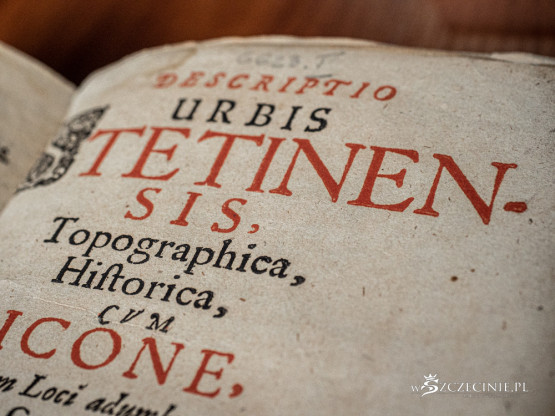 6623.I
DESCRIPTIO
URBIS
STETINEN-
SIS,
Topographica,
Hiſtorica,
CVM
ICONE,
m Loci adumb
wSZCZECINIE.PL